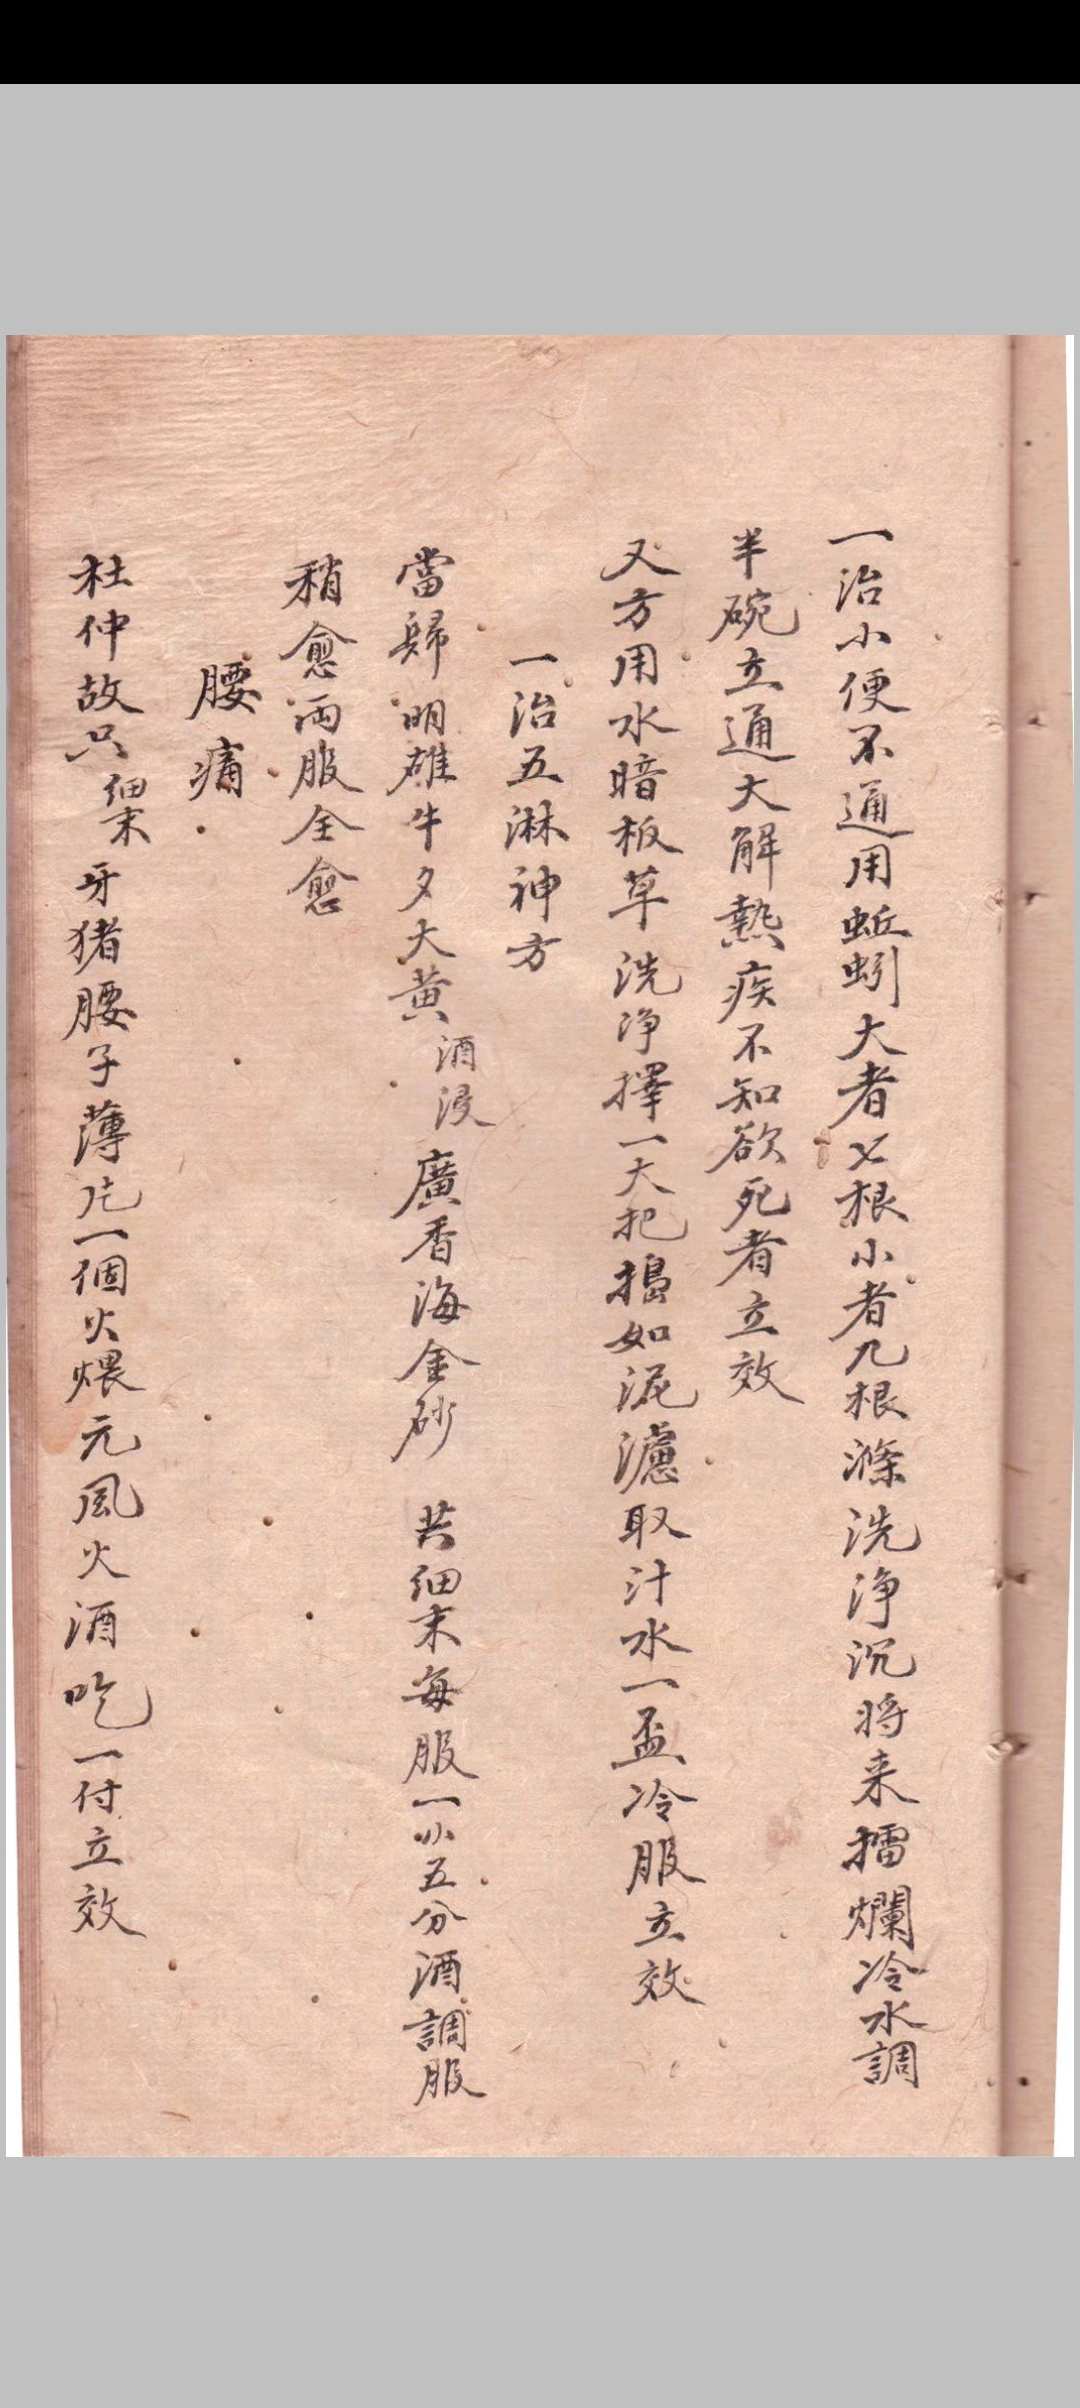 一治小便不通用蚯蚓大者七根小者几根滌洗淨沉将来擂爛冷水調
半碗立通大解熱疾不知欲死者立效
又方用水暗板草洗淨擇一大把搗如泥濾取汁水一盃冷服立效
一治五淋神方
當歸明雄牛夕大黄酒浸廣香海金砂 共細末每服一小五分酒調服
稍愈兩服全愈
腰痛
杜仲故只細末牙猪腰子薄片一個火煨元風火酒吃一付立效